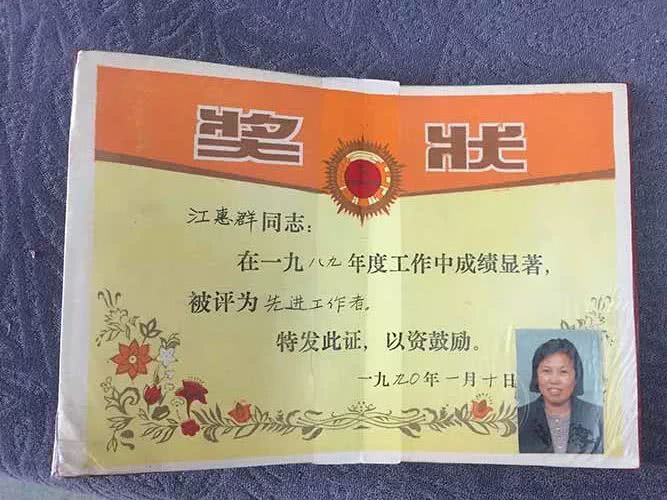 奖状
江惠群同志:
在一九八九年度工作中成绩显著,
被评为先进工作者。
特发此证,以资鼓励。
一九九〇年一月十日